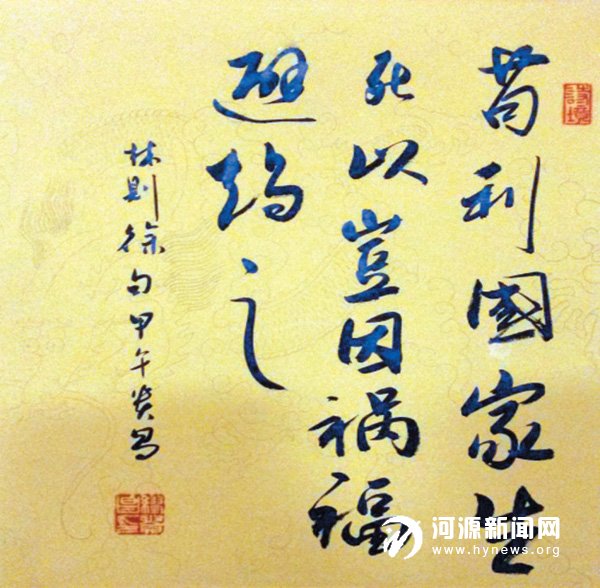 苟利國家生
死以豈因祸福
避趨之
林則徐句甲午
河源新闻网
www.hynews.org